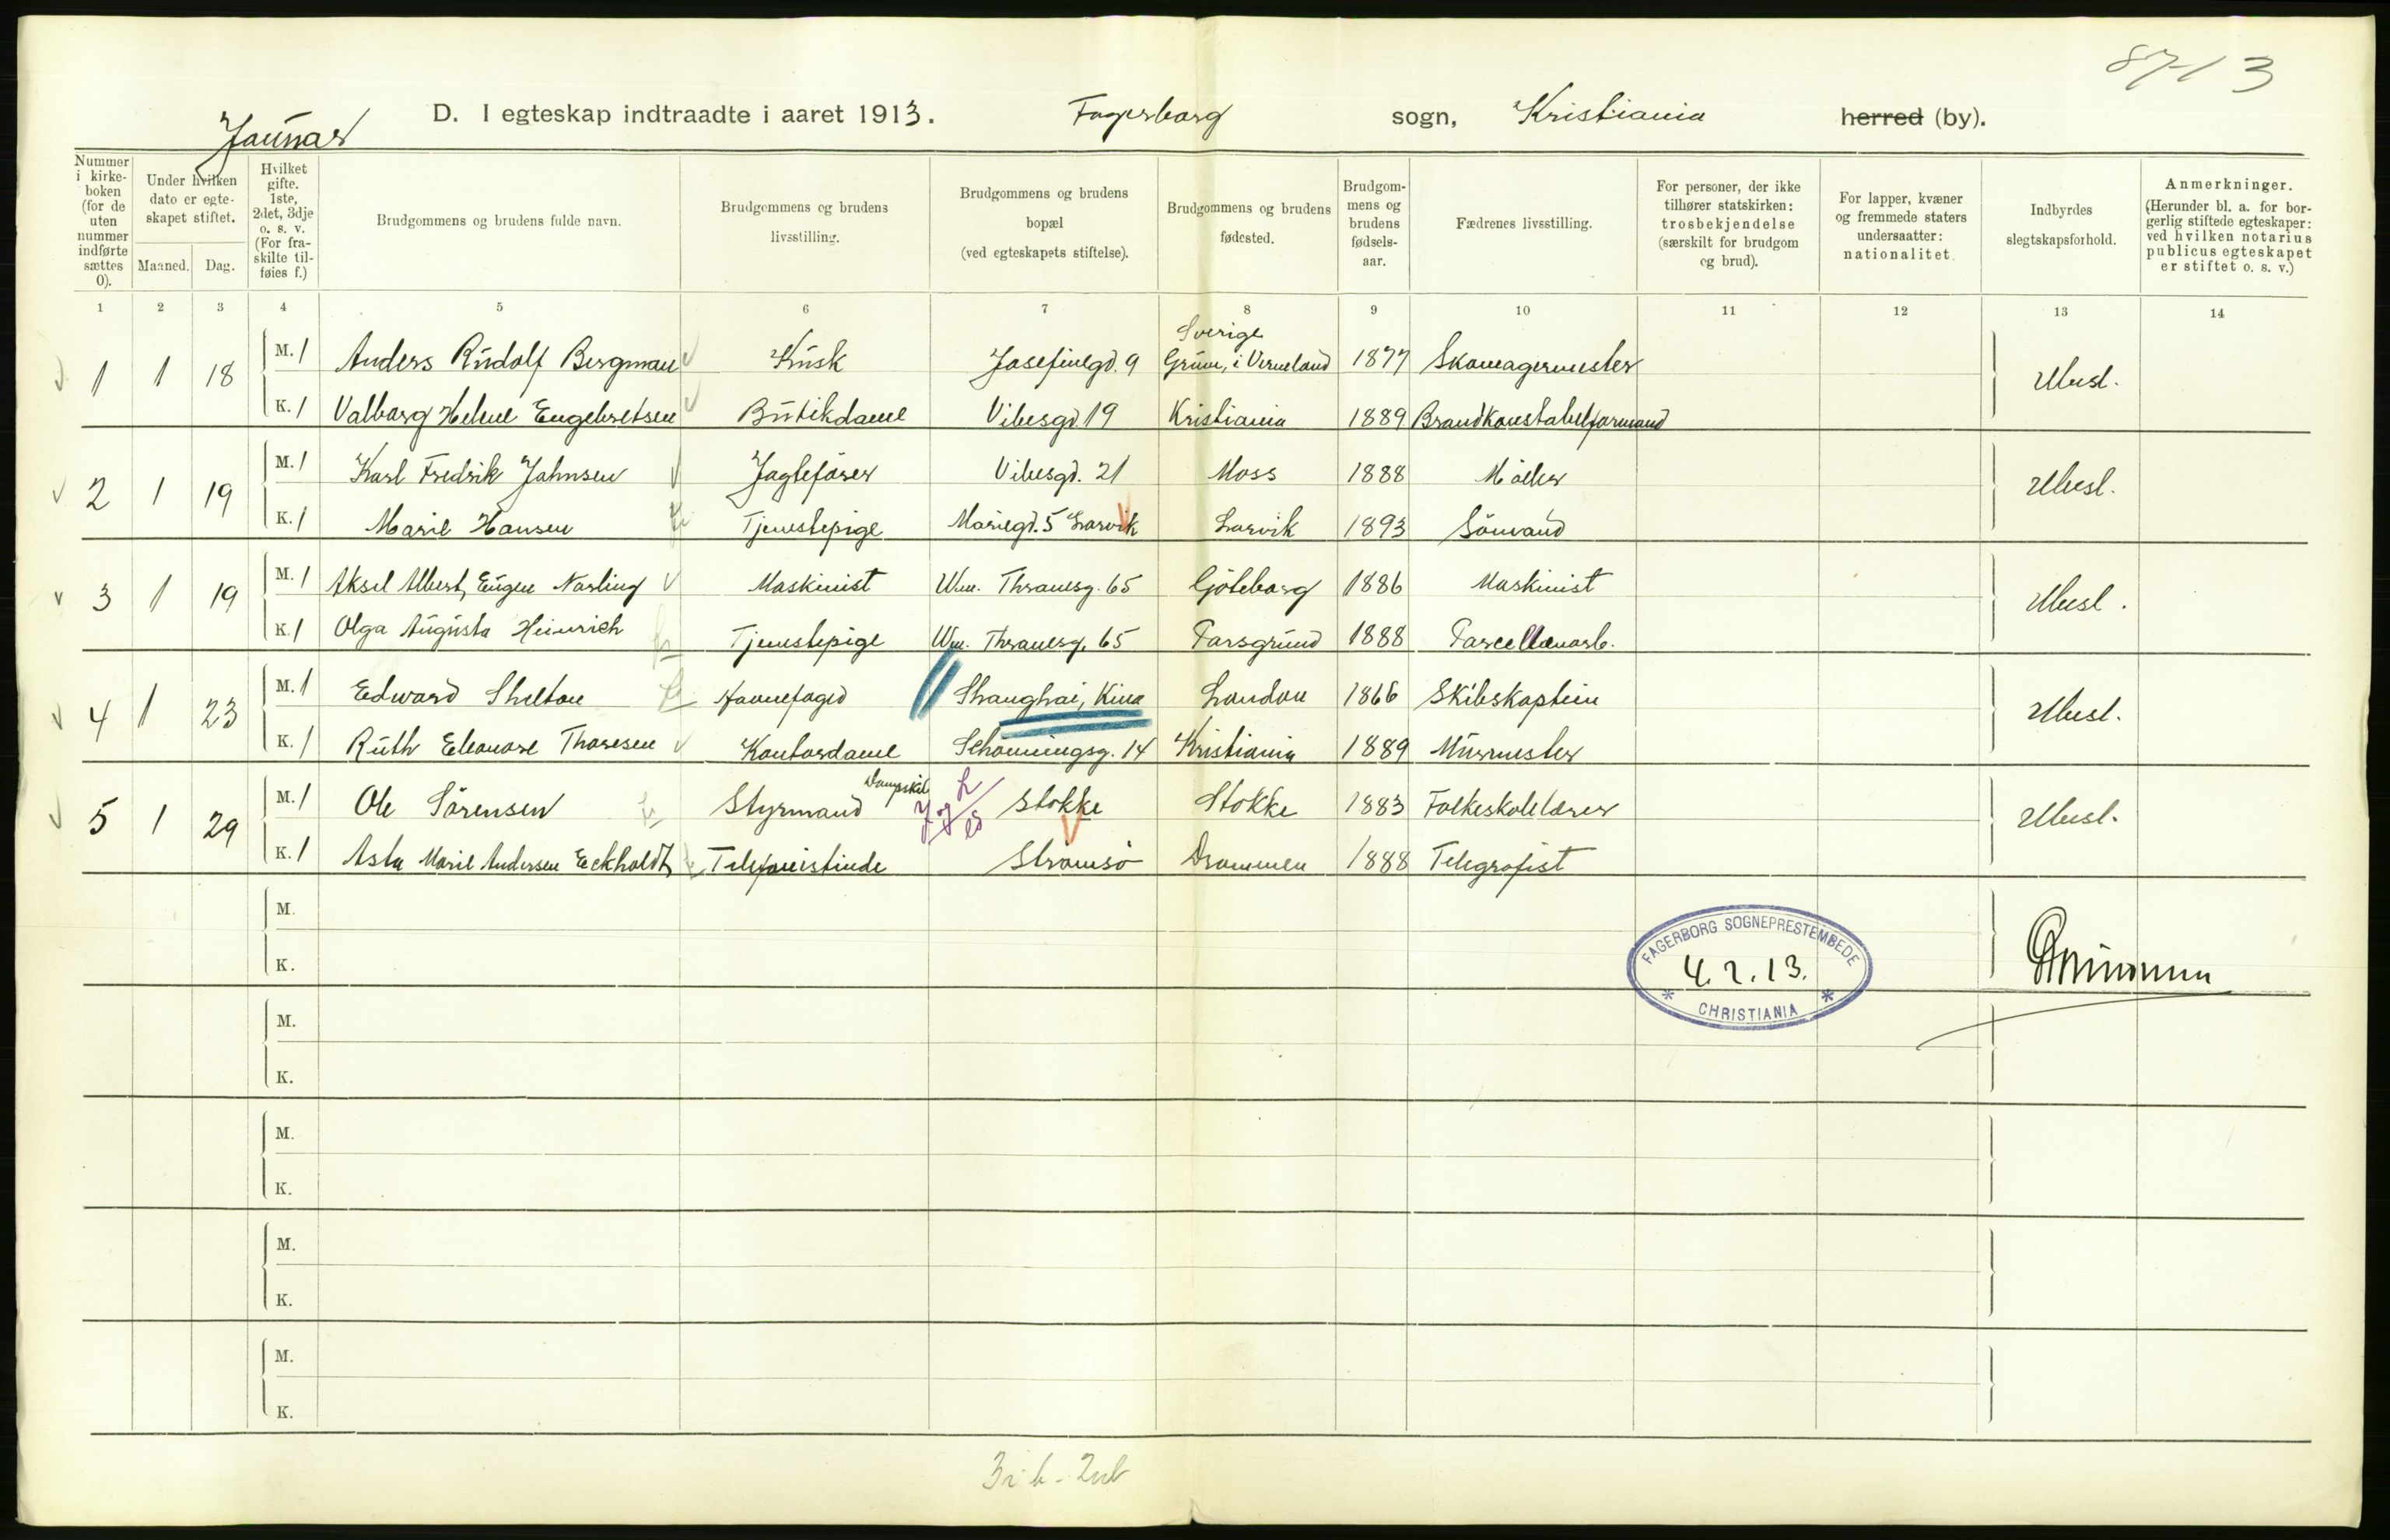 87-13
Januar
D. I egteskap indtraadte i aaret 1913. Fagerborg sogn, Kristiania herred (by).
Nummer i kirke-boken (for de uten nummer indførte sættes 0).
Under hvilken dato er egte-skapet stiftet.
Maaned. Dag.
Hvilket gifte. 1ste, 2det, 3dje o. s. v. (For fra-skilte til-føies f.)
Brudgommens og brudens fulde navn.
Brudgommens og brudens livsstilling.
Brudgommens og brudens bopæl (ved egteskapets stiftelse).
Brudgommens og brudens fødested.
Brudgom-mens og brudens fødsels-aar.
Fædrenes livsstilling.
For personer, der ikke tilhører statskirken: trosbekjendelse (særskilt for brudgom og brud).
For lapper, kvæner og fremmede staters undersaatter: nationalitet.
Indbyrdes slegtskapsforhold.
Anmerkninger. (Herunder bl. a. for bor-gerlig stiftede egteskaper: ved hvilken notarius publicus egteskapet er stiftet o. s. v.)
1 2 3 4 5 6 7 8 9 10 11 12 13 14
Sverige
1 1 18 M. 1 Anders Rudolf Bergman Kusk Josefinegd. 9 Grums, i Vermeland 1877 Skomagermester Ubesl.
K. 1 Valborg Helene Engebretsen Butikdame Vibesgd. 19 Kristiania 1889 Brandkonstabelformand
2 1 19 M. 1 Karl Fredrik Johnsen Jagtefører Vibesgd. 21 Moss 1888 Møller Ubesl.
K. 1 Marie Hansen Tjenestepige Mariegd. 5 Larvik Larvik 1893 Sömand
3 1 19 M. 1 Aksel Albert Eugen Norling Maskinist Wm. Thranesg. 65 Göteborg 1886 Maskinist Ubesl.
K. 1 Olga Augusta Heinrich Tjenestepige Wm. Thranesg. 65 Porsgrund 1888 Porcellænarb.
4 1 23 M. 1 Edward Shelton Havnefoged Shanghai, Kina London 1866 Skibskaptein Ubesl.
K. 1 Ruth Eleonore Thoresen Kontordame Schønningsg. 14 Kristiania 1889 Murmester
5 1 29 M. 1 Ole Sörensen Styrmand Dampskib Stokke Stokke 1883 Folkeskolelærer Ubesl.
K. 1 Asta Marie Andersen Eckholdt Telefonistinde Strømsø Drammen 1888 Telegrafist
M.
K.
FAGERBORG SOGNEPRESTEMBEDE
4.2.13.
CHRISTIANIA
M.
K.
M.
K.
M.
K.
M.
K.